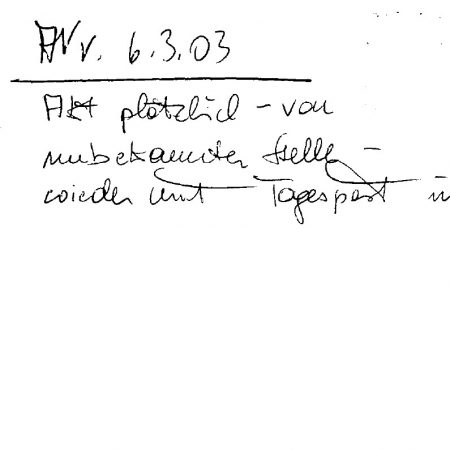 AV v. 6.3.03
Akt plötzlich - von
unbekannter Stelle -
wieder mit Tagespost